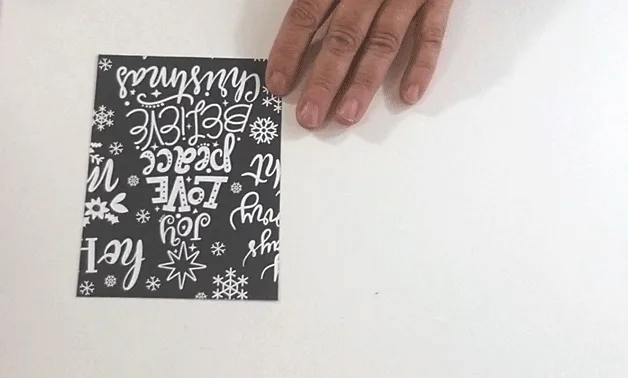 Joy
LOVE
peace
BELIEVE
Christmas